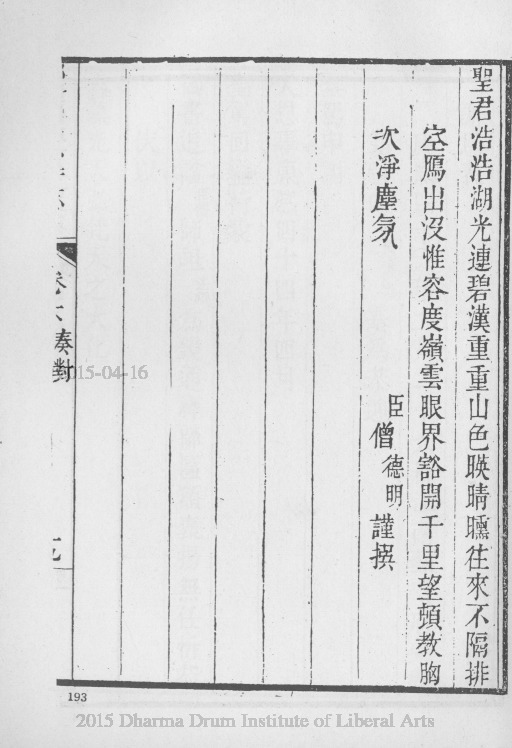 聖君浩浩湖光連碧漢重重山色暎晴曛徃來不隔排
空鴈出没惟容度嶺雲眼界豁開千里望頓教胸
次淨塵氛
臣僧德明謹撰
卷六奏對
193
2015-04-16
2015 Dharma Drum Institute of Liberal Arts